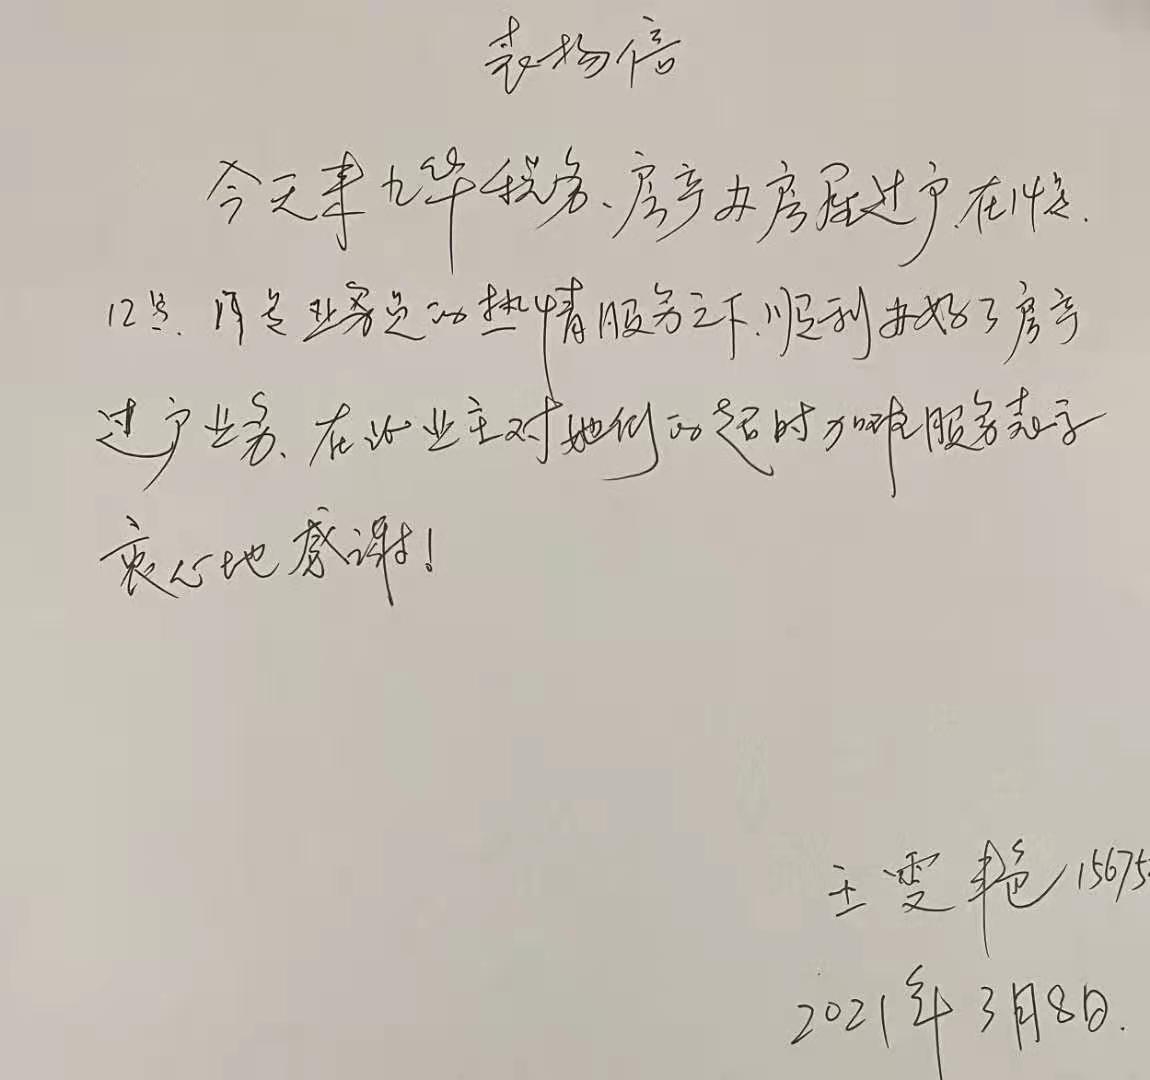 表扬信
今天来九华税务、房产办房屋过户.在
12号、业务员的热情服务之下.顺利办好了房产
过户业务、在此业主对她们的超时加班服务表示
衷心地感谢!
王雯艳 15675
2021年3月8日.